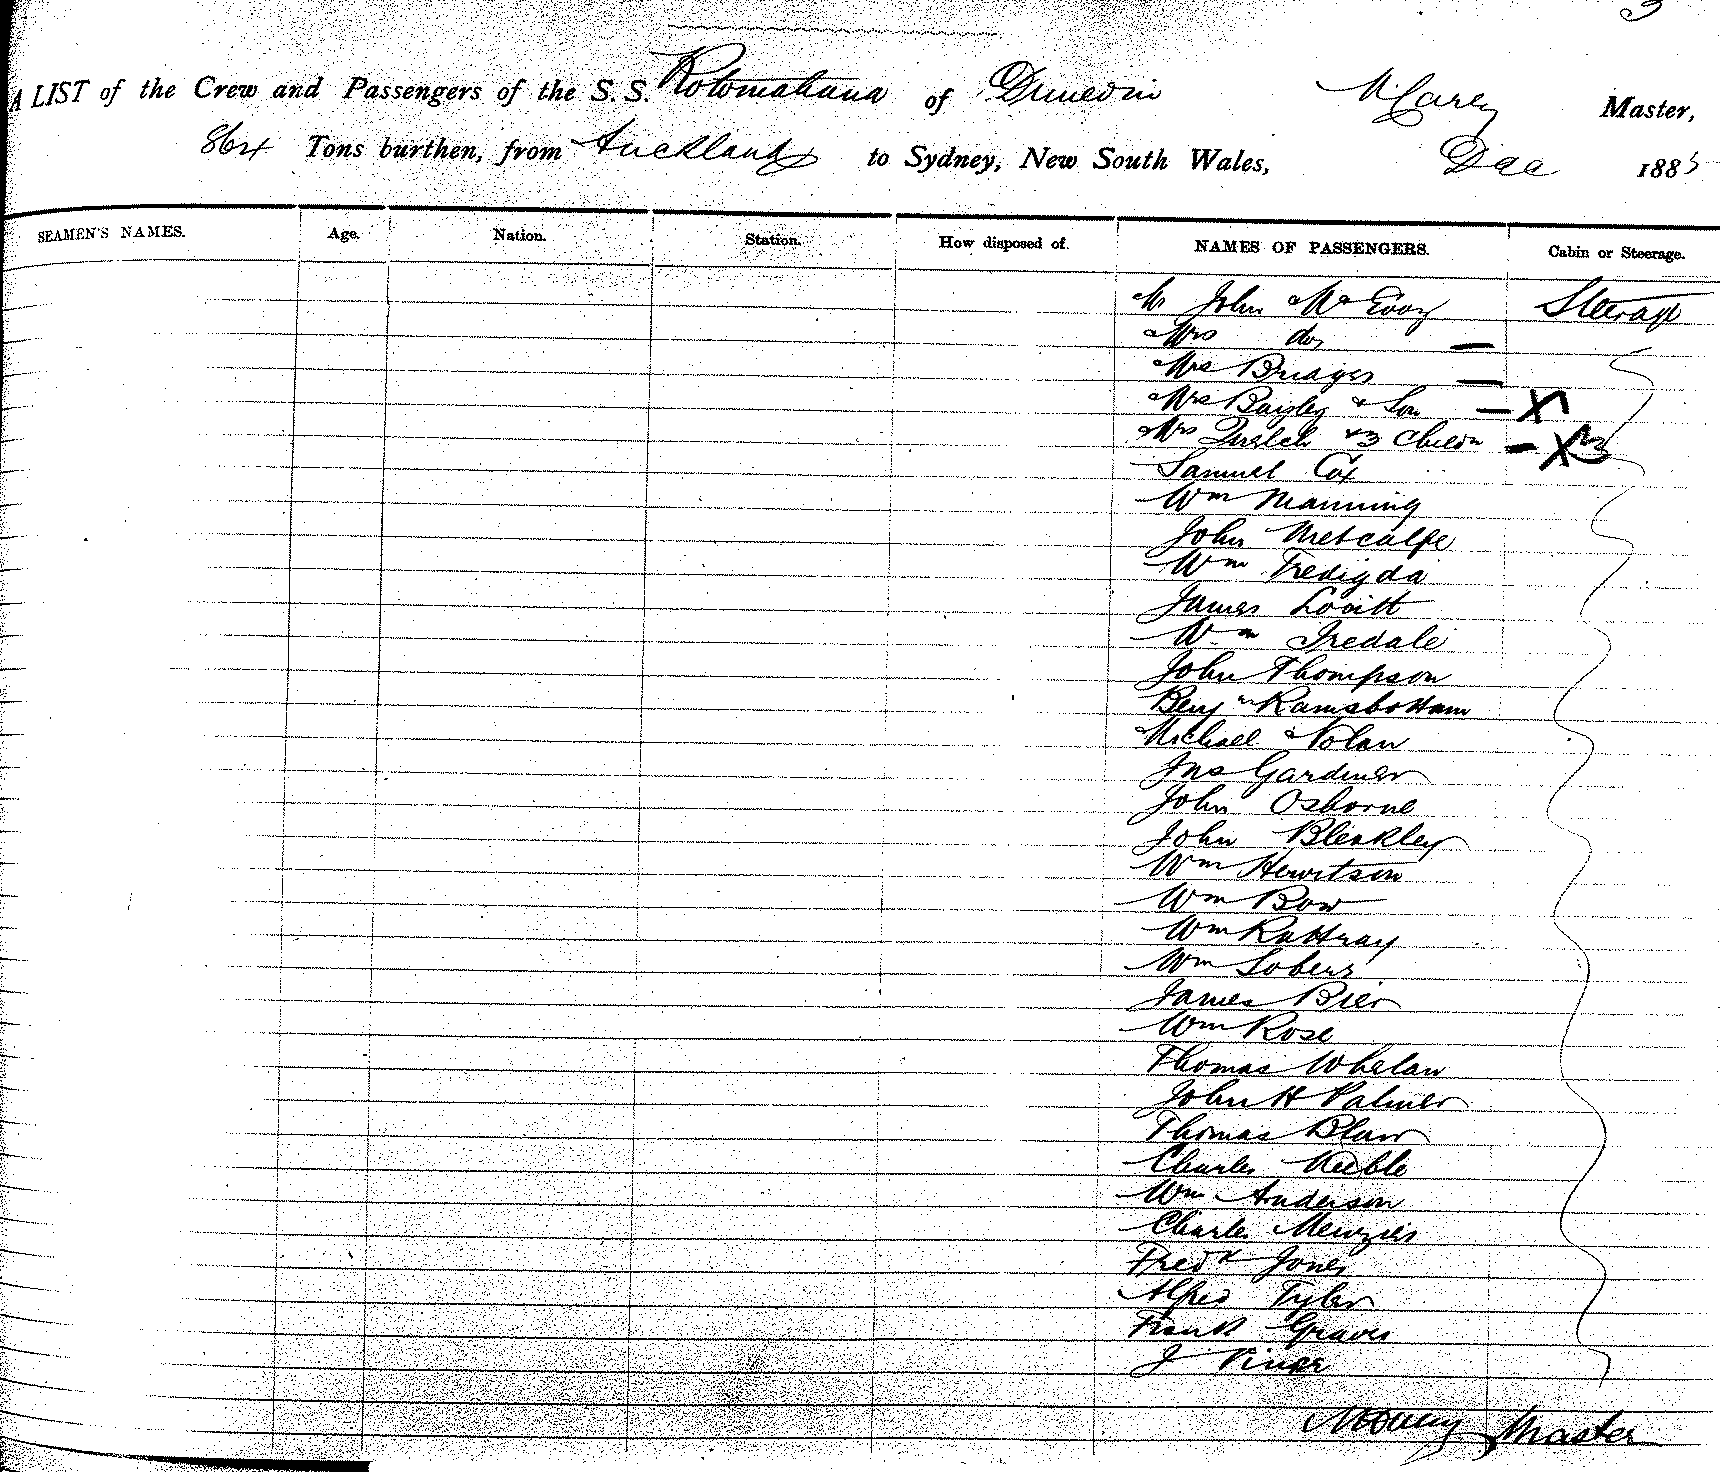 3
A LIST of the Crew and Passengers of the S.S. Rotomahana of Dunedin M Carey Master,
864 Tons burthen, from Auckland to Sydney, New South Wales, Dec 1885
SEAMEN'S NAMES. Age. Nation. Station. How disposed of. NAMES OF PASSENGERS. Cabin or Steerage.
Mr John McEvoy Steerage
Mrs do —
Mrs Bridges —
Mrs Baisley & Son — X 1
Mrs & 3 Childn — X 3
Samuel Cox
Wm Manning
John Metcalfe
Wm Fredigda
James Lovitt
Wm Iredale
John Thompson
Benjn Ramsbottam
Michael Nolan
Jno Gardiner
John Osborne
John Bleakley
Wm Hewitson
Wm Bow
Wm Rattray
Wm Sobers
James Bier
Wm Rose
Thomas Whelan
John H Palmer
Thomas Blair
Charles Keeble
Wm Anderson
Charles Menzies
Fredk Jones
Alfred Tyler
Frank Graves
J
Master